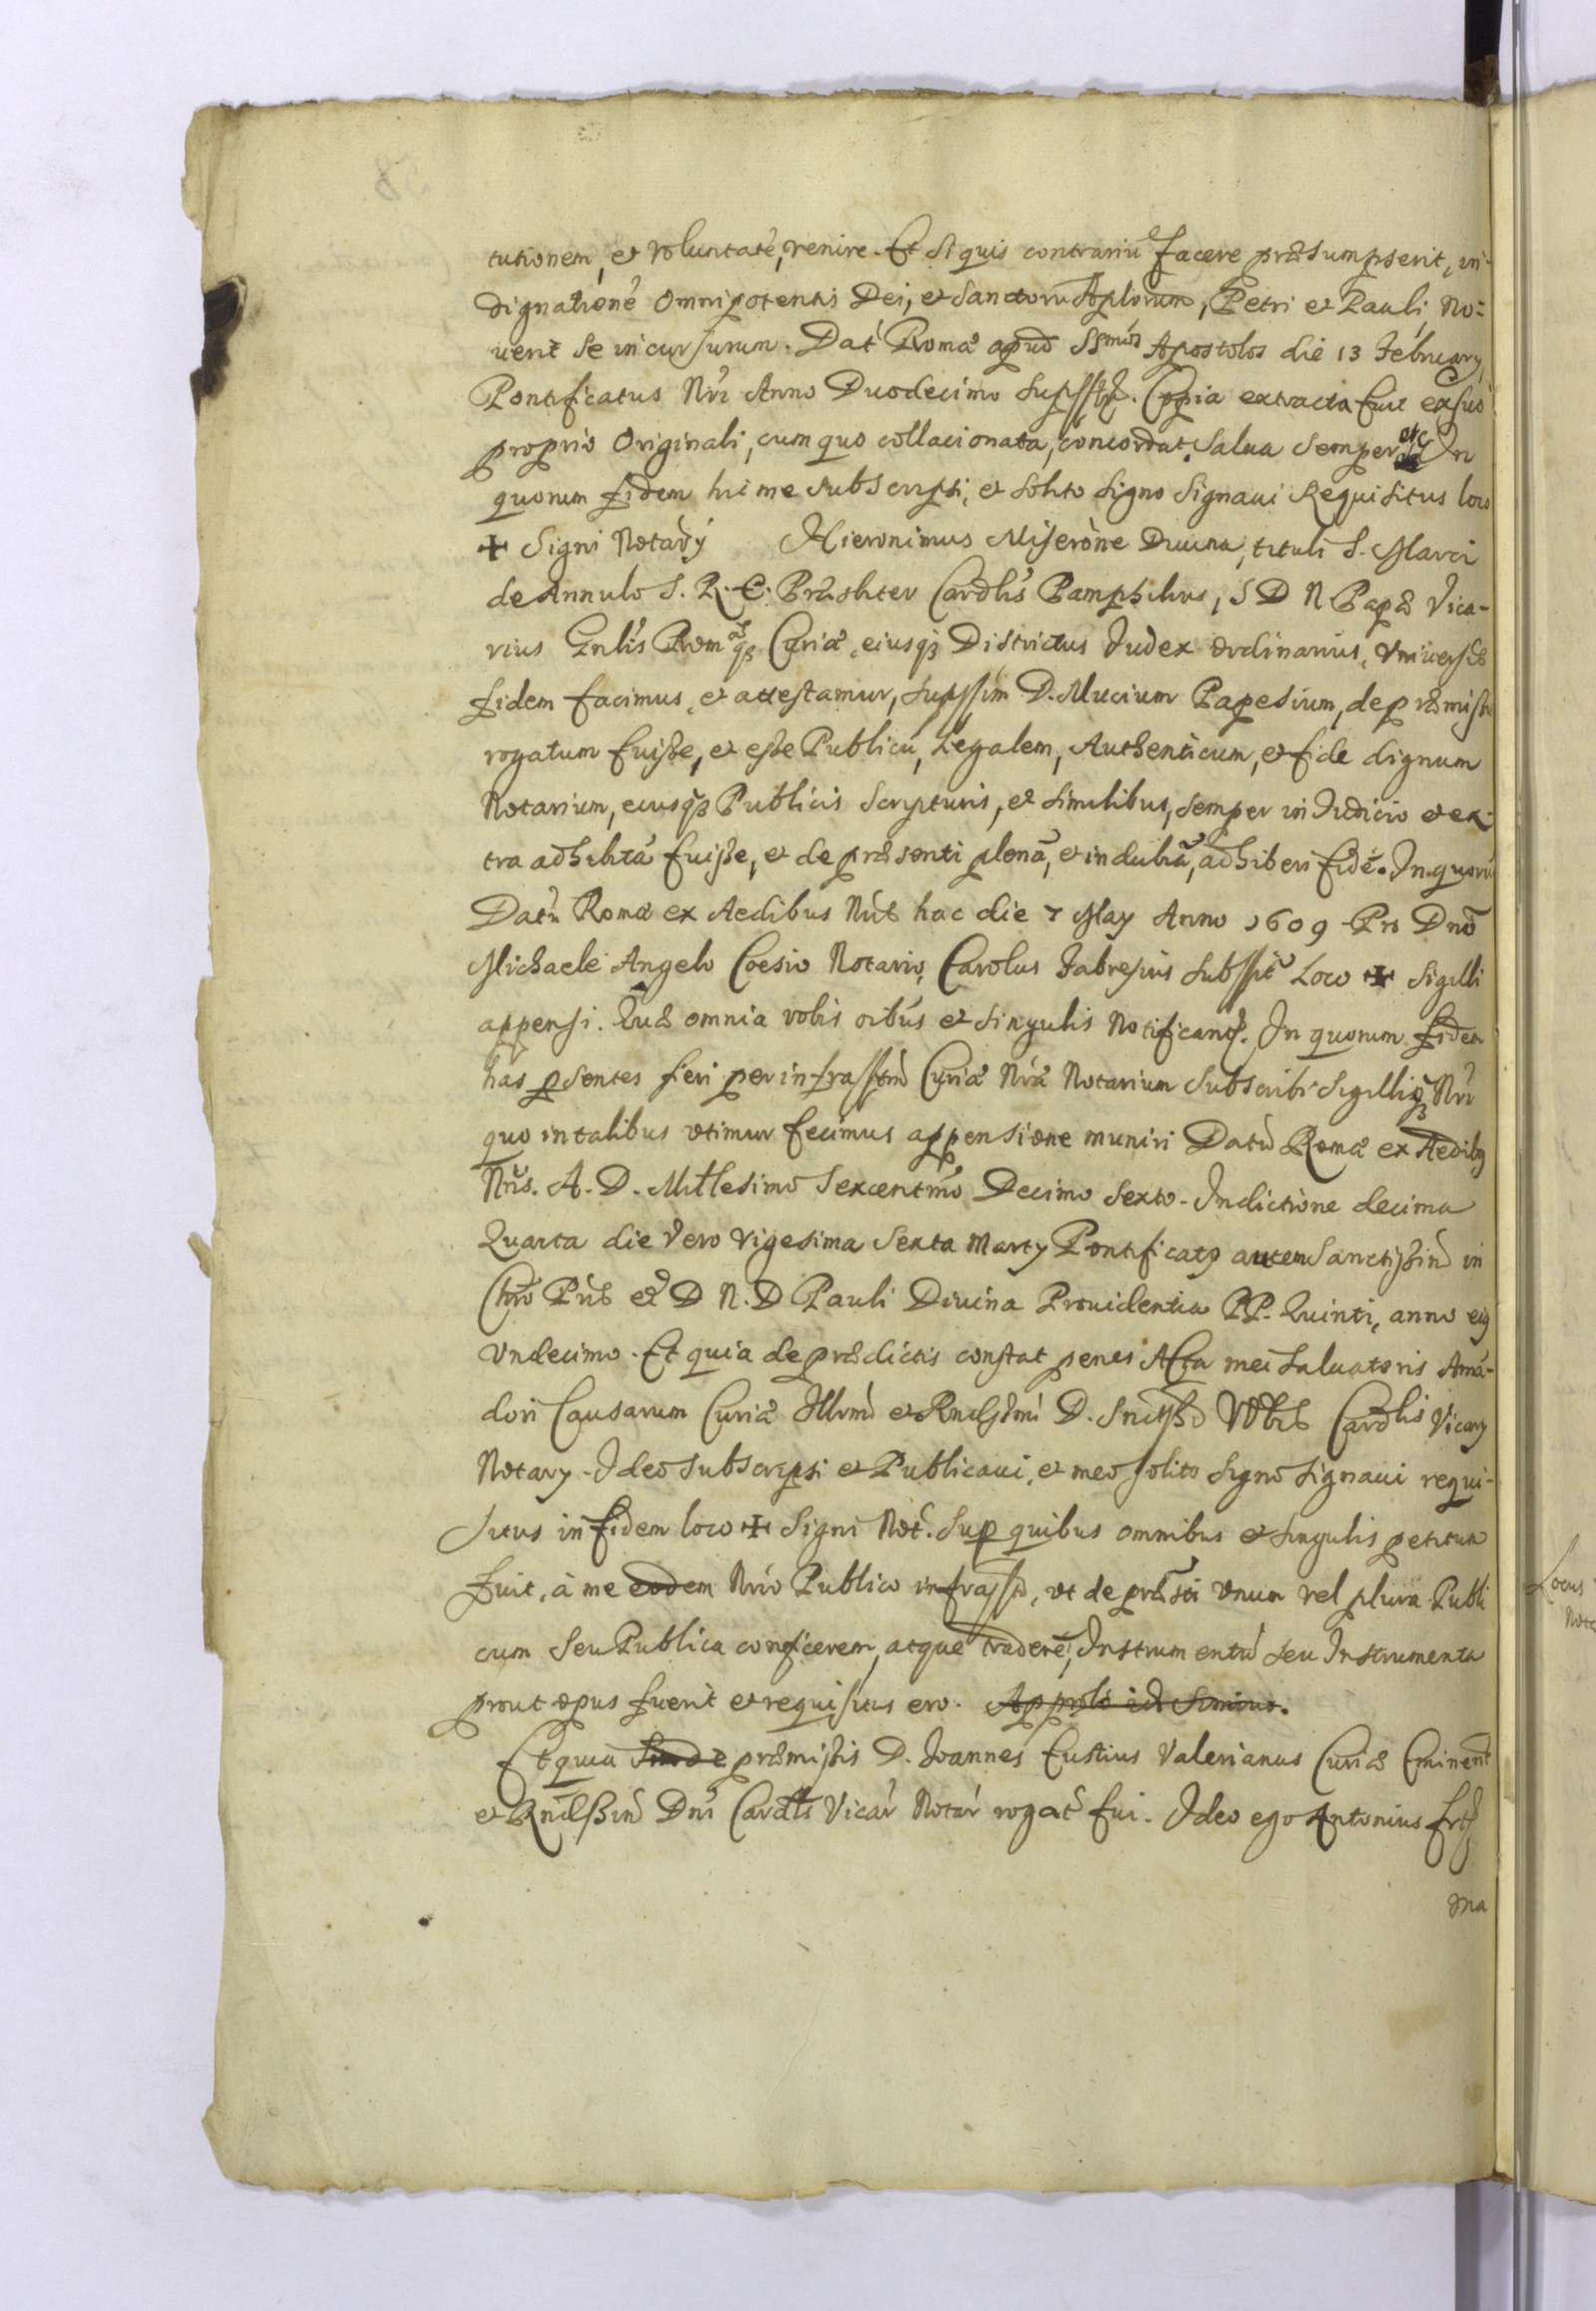 tutionem, et voluntatē, venire. Et si quis contrariū facere præsumpserit, in-
dignationē Omnipotentis Dei, et Sanctorū Aplorum, Petri et Pauli No-
uerit se incursurum. Dat Romæ apud SSmos Apostolos die 13 February
Pontificatus Nri Anno Duodecimo Copia extracta fuit ex suo
proprio Originali, cum quo collacionata, concordat. Salua semper etc In
quorum fidem hic me subscripsi, et solito signo signaui Requisitus loco
✠ Signi Notarÿ Hieronimus Miserone Diuina, tituli S. Marci
de Annulo S. R. E. Præsbiter Cardlis Pamphilius, S D N Papæ Vica-
rius Gnlis Romæq3 Curiæ, eiusq3 Districtus Iudex ordinarius, Vniuersis
fidem facimus, et attestamur, D. Mucium Papesium, de præmissis
rogatum fuisse, et esse Publicū, Legalem, Authenticum, et fide dignum
Notarium, eiusq3 Publicis Scripturis, et similibus, semper in Iudicio et ex-
tra adhibitā fuisse, et de præsenti plenā, et indubiā, adhiberi fidē. In quorū
Datū Romæ ex Aedibus Nris hac die 7 May Anno 1609 Pro Dno
Michaele Angelo Coesio Notario, Carolus Fabresius Loco ✠ Sigilli
appensi. Quæ omnia vobis oibus et singulis Notificamus. In quorum fidem
has psentes fieri per Curiæ Nræ Notarium subscribi Sigilliq3 Nri
quo in talibus vtimur fecimus appensione muniri Datū Romæ ex Aedibus
Nris. A. D. Millesimo Sexcentmo Decimo Sexto. Indictione decima
Quarta die vero vigesima Sexta Marty Pontificatus autem Sanctissimi in
Chro Pris et D N. D Pauli Diuina Prouidentia PP. Quinti, anno eius
Vndecimo. Et quia de prædictis constat penes Acta mei Saluatoris Ama-
dori Causarum Curiæ Illrmi et Rndssmi D. Vrbis Cardlis Vicary
Notary. Ideo subscripsi et Publicaui, et meo solito signo signaui requi-
situs in fidem loco ✠ Signi Not. Sup quibus omnibus et singulis petitum
fuit, à me eodem Nrio Publico, vt de vnum vel plura Publi
cum seu Publica conficerem, atque traderē, Instrumentū seu Instrumenta
prout opus fuerit et requisitus ero.
Et quia præmissis D. Ioannes Eustius Valerianus Curiæ Eminent
et Rndssmi Dni Cardlis Vicar Notar rogat fui. Ideo ego Antonius
ma
Locus
Nota